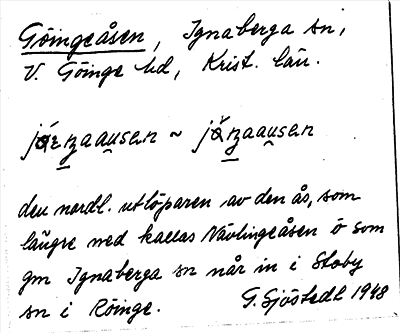 Göingeåsen, Ignaberga sn,
V. Göinge hd, Krist. län.
den nordl. utlöparen av den ås, som
längre ned kallas Nävlingeåsen o som
gm Ignaberga sn når in i Stoby
sn i Röinge. G. Sjöstedt 1948